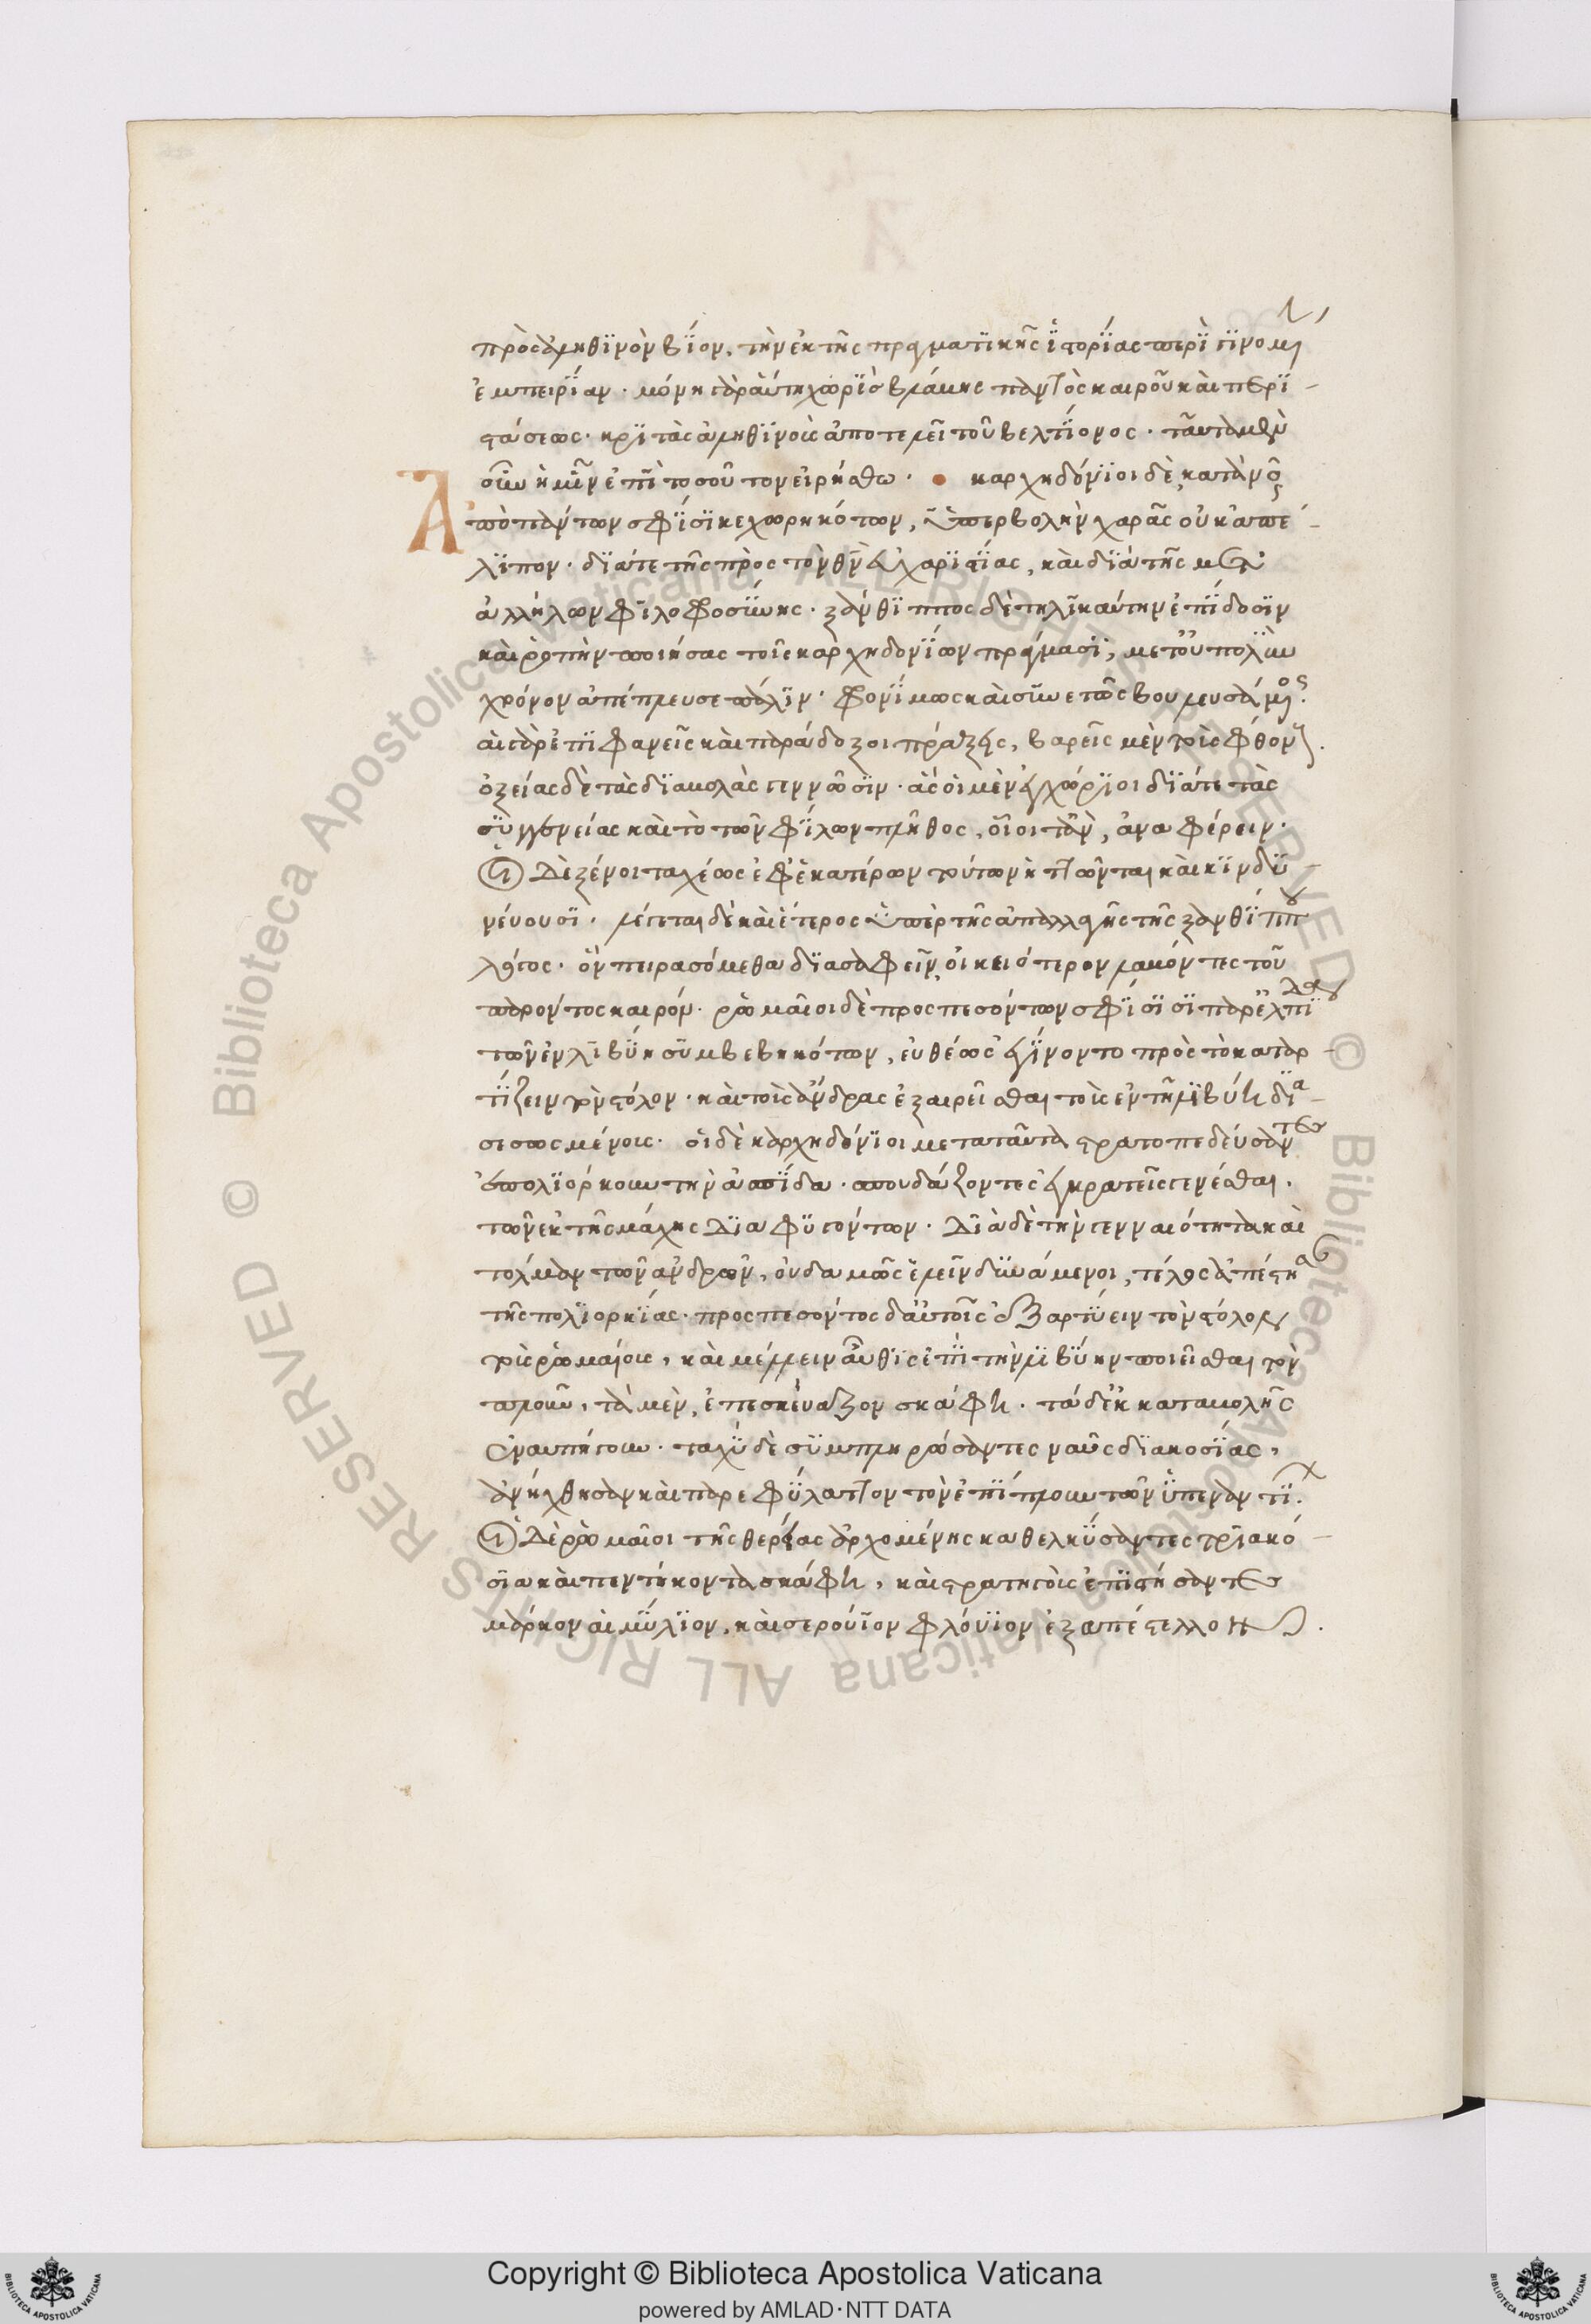 πρὸς ἀληθινὸν βίον, τὴν ἐκ τῆς πραγματικῆς ἱστορίας περιγινομένην
ἐμπειρίαν· μόνη γὰρ αὕτη χωρὶς βλάβης παντὸς καιροῦ καὶ περι-
στάσεως· κριτὰς ἀληθινοὺς ἀποτελεῖ τοῦ βελτίονος· ταῦτα μὲν
οὖν ἡμῖν ἐπὶ τοσοῦτον εἰρήσθω· καρχηδόνιοι δὲ, κατὰ νοῦν
Ἁπάντων σφίσι κεχωρηκότων, ὑπερβολὴν χαρᾶς οὐκ ἀπέ-
λιπον· διά τε τῆς πρὸς τὸν θν εὐχαριστίας, καὶ διὰ τῆς μετ'
ἀλλήλων φιλοφροσύνης· ξάνθιππος δὲ τηλικαύτην ἐπίδοσιν
καὶ ῥοπὴν ποιήσας τοῖς καρχηδονίων πράγμασι, μετ' οὐ πολὺν
χρόνον ἀπέπλευσε πάλιν· φρονίμως καὶ συνετῶς βουλευσάμενος·
αἱ γὰρ ἐπιφανεῖς καὶ παράδοξοι πράξεις, βαρεῖς μὲν τοὺς φθόνους·
ὀξείας δὲ τὰς διαβολὰς γεννῶσιν· ἃς οἱ μὲν ἐγχώριοι διά τε τὰς
συγγενείας καὶ τὸ τῶν φίλων πλῆθος, οἷοί τ' ἂν, ἀναφέρειν·
οἱ Δὲ ξένοι ταχέως ἐφ' ἑκατέρων τούτων ἡττῶνται καὶ κινδυ-
νεύουσι· λέγεται δὲ καὶ ἕτερος ὑπὲρ τῆς ἀπαλλαγῆς τῆς ξανθίππου
λόγος· ὃν πειρασόμεθα διασαφεῖν, οἰκειότερον λαβόντες τοῦ
παρόντος καιρόν· ῥωμαῖοι δὲ προσπεσόντων σφίσι σι παρ' ἐλπίδας
τῶν ἐν λιβύη συμβεβηκότων, εὐθέως ἐγίνοντο πρὸς τὸ καταρ-
τίζειν τὸν στόλον· καὶ τοὺς ἄνδρας ἐξαιρεῖσθαι τοὺς ἐν τῆ λιβύη δια-
σεσωσμένους· οἱ δὲ καρχηδόνιοι μετὰ ταῦτα στρατοπεδεύσαντες
ἐπολιόρκουν τὴν ἀσπίδα· σπουδάζοντες ἐγκρατεῖς γενέσθαι.
τῶν ἐκ τῆς μάχης Διαφυγόντων· Διὰ δὲ τὴν γενναιότητα καὶ
τόλμαν τῶν ἀνδρῶν, οὐδαμῶς ἑλεῖν δυνάμενοι, τέλος ἀπέστησαν
τῆς πολιορκίας· προσπεσόντος δ' αὐτοῖς ἐξαρτύειν τὸν στόλον
τοὺς ῥωμαίους, καὶ μέλλειν αὖθις ἐπὶ τὴν λιβύην ποιεῖσθαι τὸν
πλοῦν, τὰ μὲν, ἐπεσκεύαζον σκάφη· τὰ δ' ἐκ καταβολῆς
ἐναυπήγουν· ταχὺ δὲ συμπληρώσαντες ναῦς διακοσίας,
ἀνήχθησαν καὶ παρεφύλαττον τὸν ἐπίπλουν τῶν ὑπεναντίων·
οἱ Δὲ ῥωμαῖοι τῆς θερείας ἀρχομένης καθελκύσαντες τριακό-
σια καὶ πεντήκοντα σκάφη, καὶ στρατηγοὺς ἐπιστήσαντες
μάρκον αἰμύλιον, καὶ σερούϊον φλόυϊον ἐξαπέστελλον.